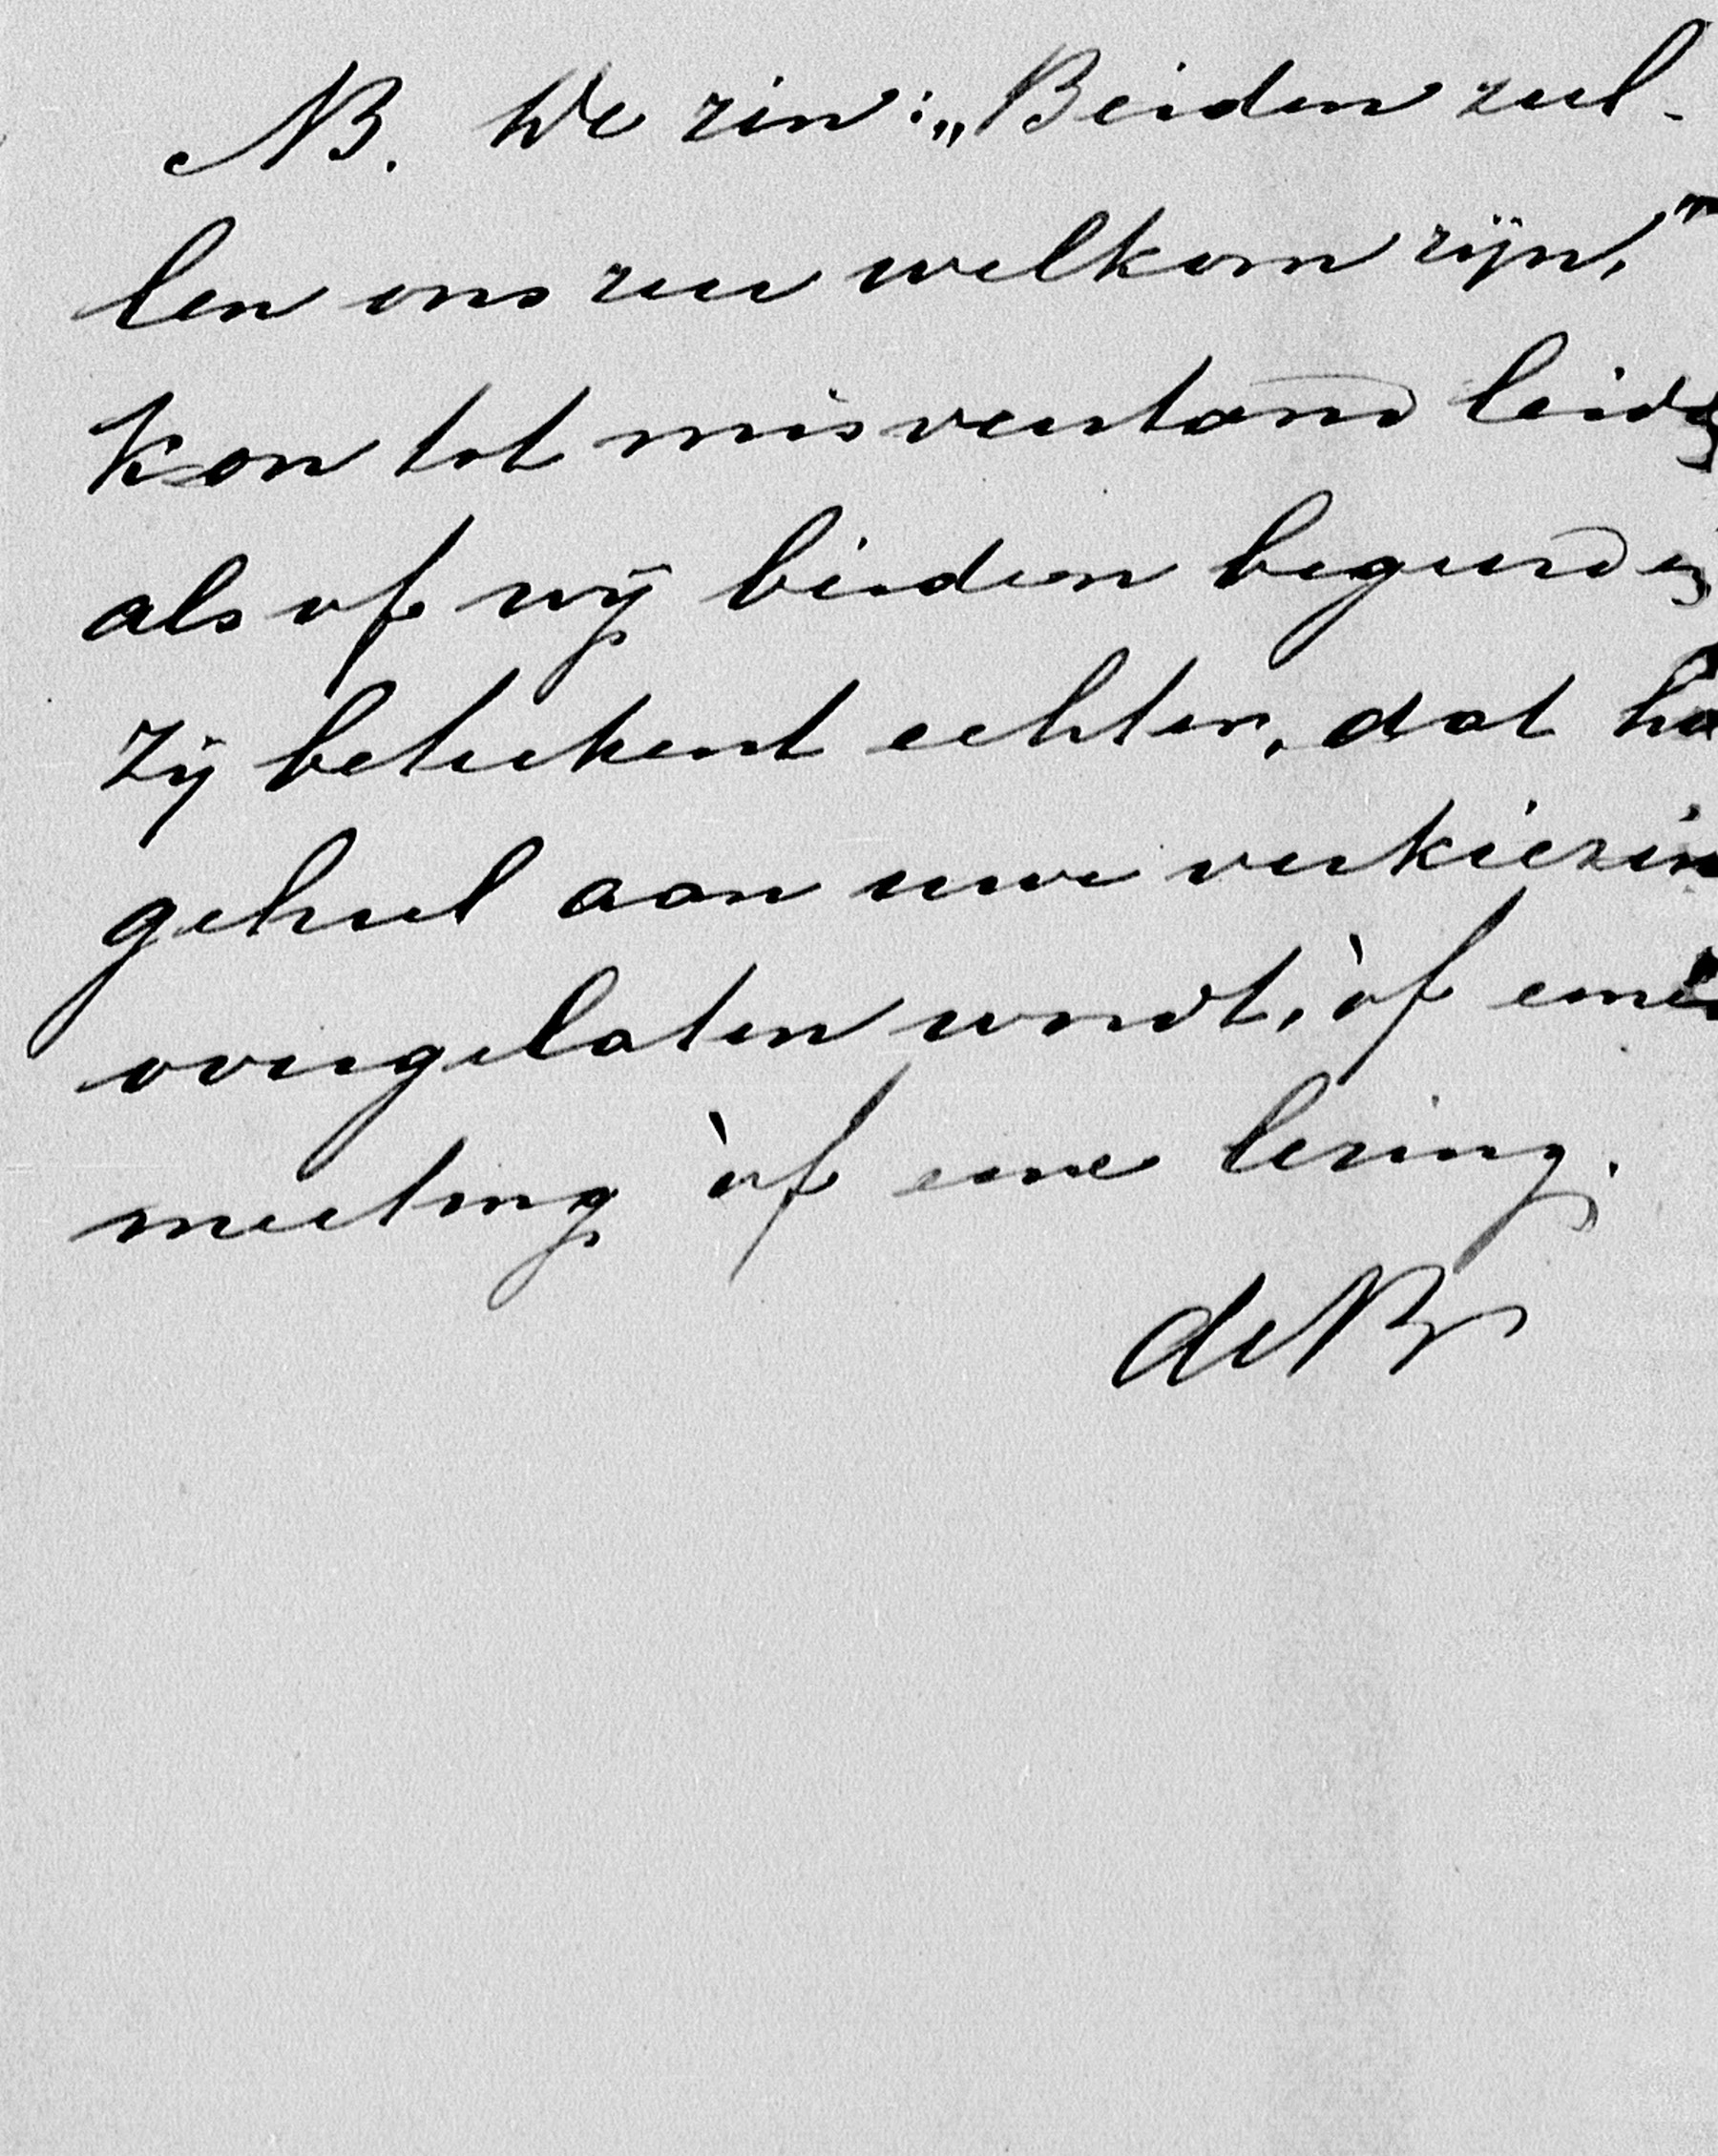 NB. De zin: „Beiden zul-
len ons zeer welkom zijn,"
kon tot misverstand leiden
als of wij beiden begeerden
zij beteekent echter, dat het
geheel aan uwe verkiezing
overgelaten wordt, òf eene
meeting òf eene lezing.
de B